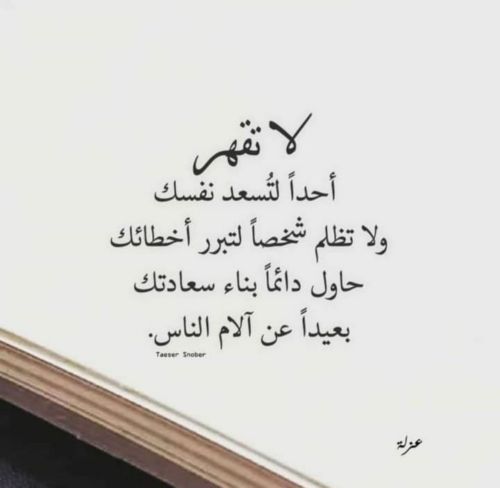 لا تقهر
أحداً لتُسعد نفسك
ولا تظلم شخصاً لتبرر أخطائك
حاول دائماً بناء سعادتك
بعيداً عن آلام الناس.
Taeser Snober
عزلة